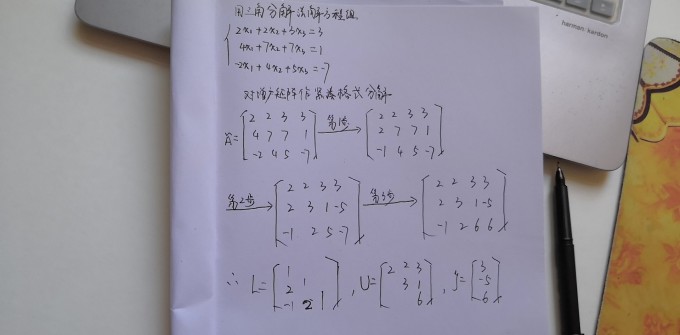 用三角分解法解方程组.
2x₁+2x₂+3x₃=3
4x₁+7x₂+7x₃=1
-2x₁+4x₂+5x₃=-7
对增广矩阵作紧凑格式分解.
Ā= [2 2 3 3; 4 7 7 1; -2 4 5 -7] 第1步→ [2 2 3 3; 2 7 7 1; -1 4 5 -7]
第2步→ [2 2 3 3; 2 3 1 -5; -1 2 5 -7] 第3步→ [2 2 3 3; 2 3 1 -5; -1 2 6 6]
∴ L= [1; 2 1; -1 2 1], U= [2 2 3; 3 1; 6], y= [3; -5; 6]
harman/kardon